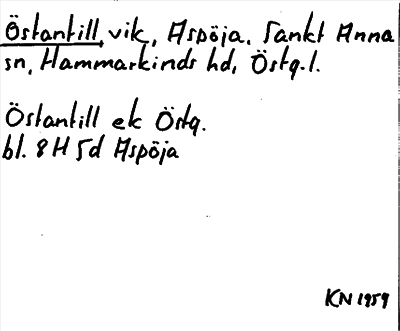 Östantill, vik, Aspöja, Sankt Anna
sn, Hammarkinds hd, Östg.l.
Östantill ek Östg.
bl. 8H 5d Aspöja
KN 1959